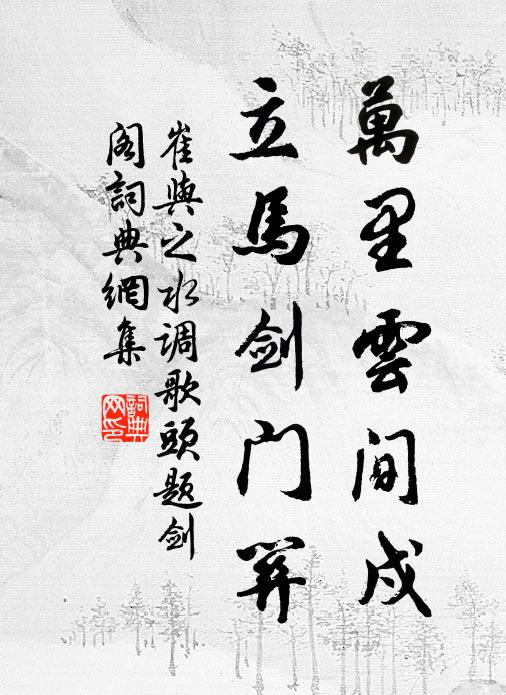 萬里雲间戍
立馬剑门关
崔與之水调歌頭题剑
阁詞典網集
詞典
网印